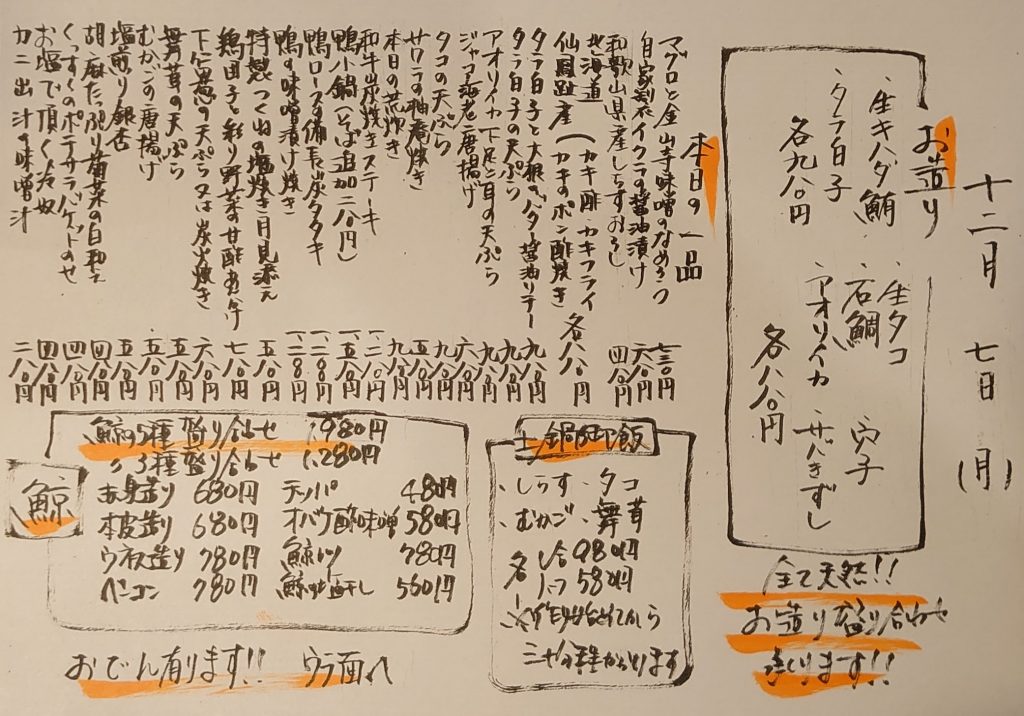 十二月 七日 (月)
お造り
・生キハダ鮪
・タラ白子
各九八〇円
・生タコ
石鯛 ・穴子
・アオリイカ サバきずし
各八八〇円
全て天然!!
お造り盛り合わせ
承ります!!
本日の一品
マグロと金山寺味噌のなめろう 七三〇円
自家製イクラの醤油漬け 六八〇円
和歌山県産しらすおろし 四八〇円
北海道
仙鳳趾産 (カキ酢・カキフライ
(カキのポン酢焼き 各八八〇円
タラ白子と大根のバター醤油ソテー 九八〇円
タラ白子の天ぷら 九八〇円
アオリイカ下足と耳の天ぷら 九八〇円
ジャコ海老唐揚げ 六八〇円
タコの天ぷら 九八〇円
サワラの柚庵焼き
本日の荒炊き
和牛炭焼きステーキ
鴨小鍋(そば追加二八〇円)
鴨ロースの備長炭タタキ
鴨の味噌漬け焼き
特製つくねの塩焼き月見添え 五八〇円
鶏団子と彩り野菜の甘酢あんかけ 七八〇円
下仁田葱の天ぷら又は炭火焼き 六八〇円
舞茸の天ぷら 五八〇円
むかごの唐揚げ 五八〇円
塩煎り銀杏 五八〇円
胡麻たっぷり菊菜の白和え 四八〇円
くっすくのポテサラバゲットのせ 四八〇円
お塩で頂く冷奴 四八〇円
カニ出汁の味噌汁 二八〇円
土鍋御飯
・しらす ・タコ
・むかご ・舞茸
各 し合 980円
ハーフ 580円
鯨
鯨の5種盛り合わせ 1,980円
〃 3種盛り合わせ 1,280円
赤身造り 680円 テッパ 480円
本皮造り 680円 オバケ酢味噌 580円
ウネス造り 780円 鯨カツ 780円
ベーコン 780円 鯨の塩干し 560円
おでん有ります!! ウラ面へ